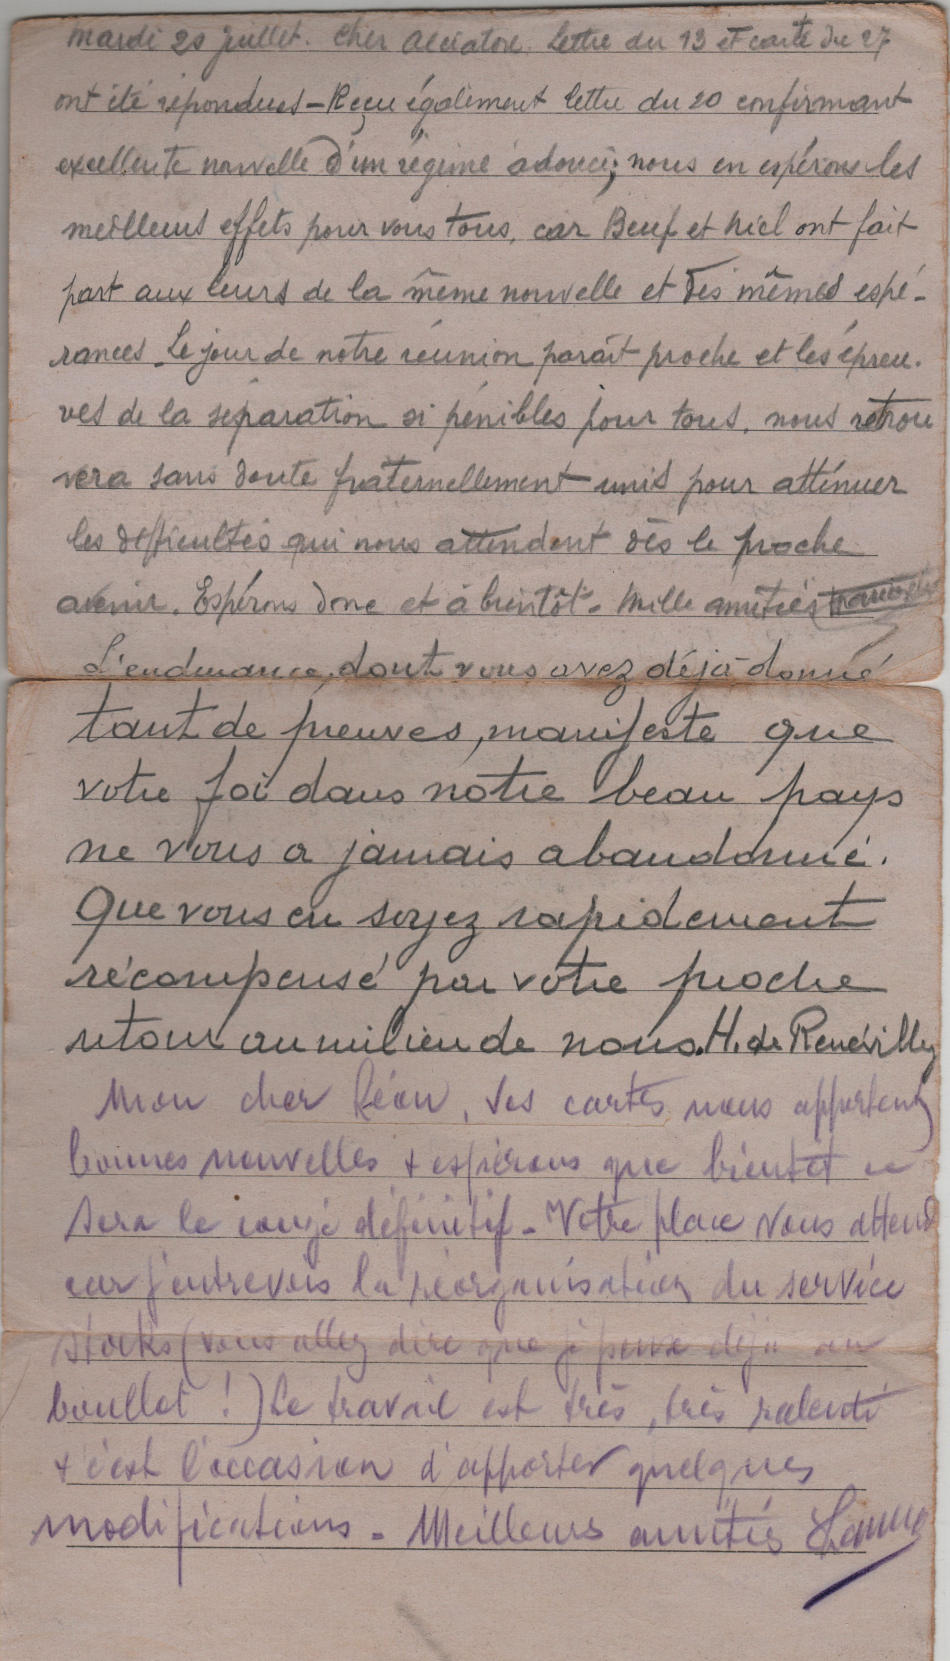 mardi 20 juillet. Cher Alciatore. Lettre du 13 et carte du 27
ont été répondues – Reçu également lettre du 20 confirmant
excellente nouvelle d'un régime adouci; nous en espérons les
meilleurs effets pour vous tous, car Beuf et Niel ont fait
part aux leurs de la même nouvelle et des mêmes espé-
rances. Le jour de notre réunion paraît proche et les épreu-
ves de la séparation si pénibles pour tous, nous retrou
vera sans doute fraternellement unis pour atténuer
les difficultés qui nous attendent dès le proche
avenir. Espérons donc et à bientôt. Mille amitiés
L'endurance, dont vous avez déjà donné
tant de preuves, manifeste que
votre foi dans notre beau pays
ne vous a jamais abandonné.
Que vous en soyez rapidement
récompensé par votre proche
retour au milieu de nous. H. de Renévilly
Mon cher Léon, vos cartes nous apportent
bonnes nouvelles & espérons que bientot ce
sera le congé définitif - Votre place vous attend
car j'entrevois la réorganisation du service
stocks (vous allez dire que je pense déjà au
boullot !) Le travail est très, très ralenti
& c'est l'occasion d'apporter quelques
modifications - Meilleurs amitiés